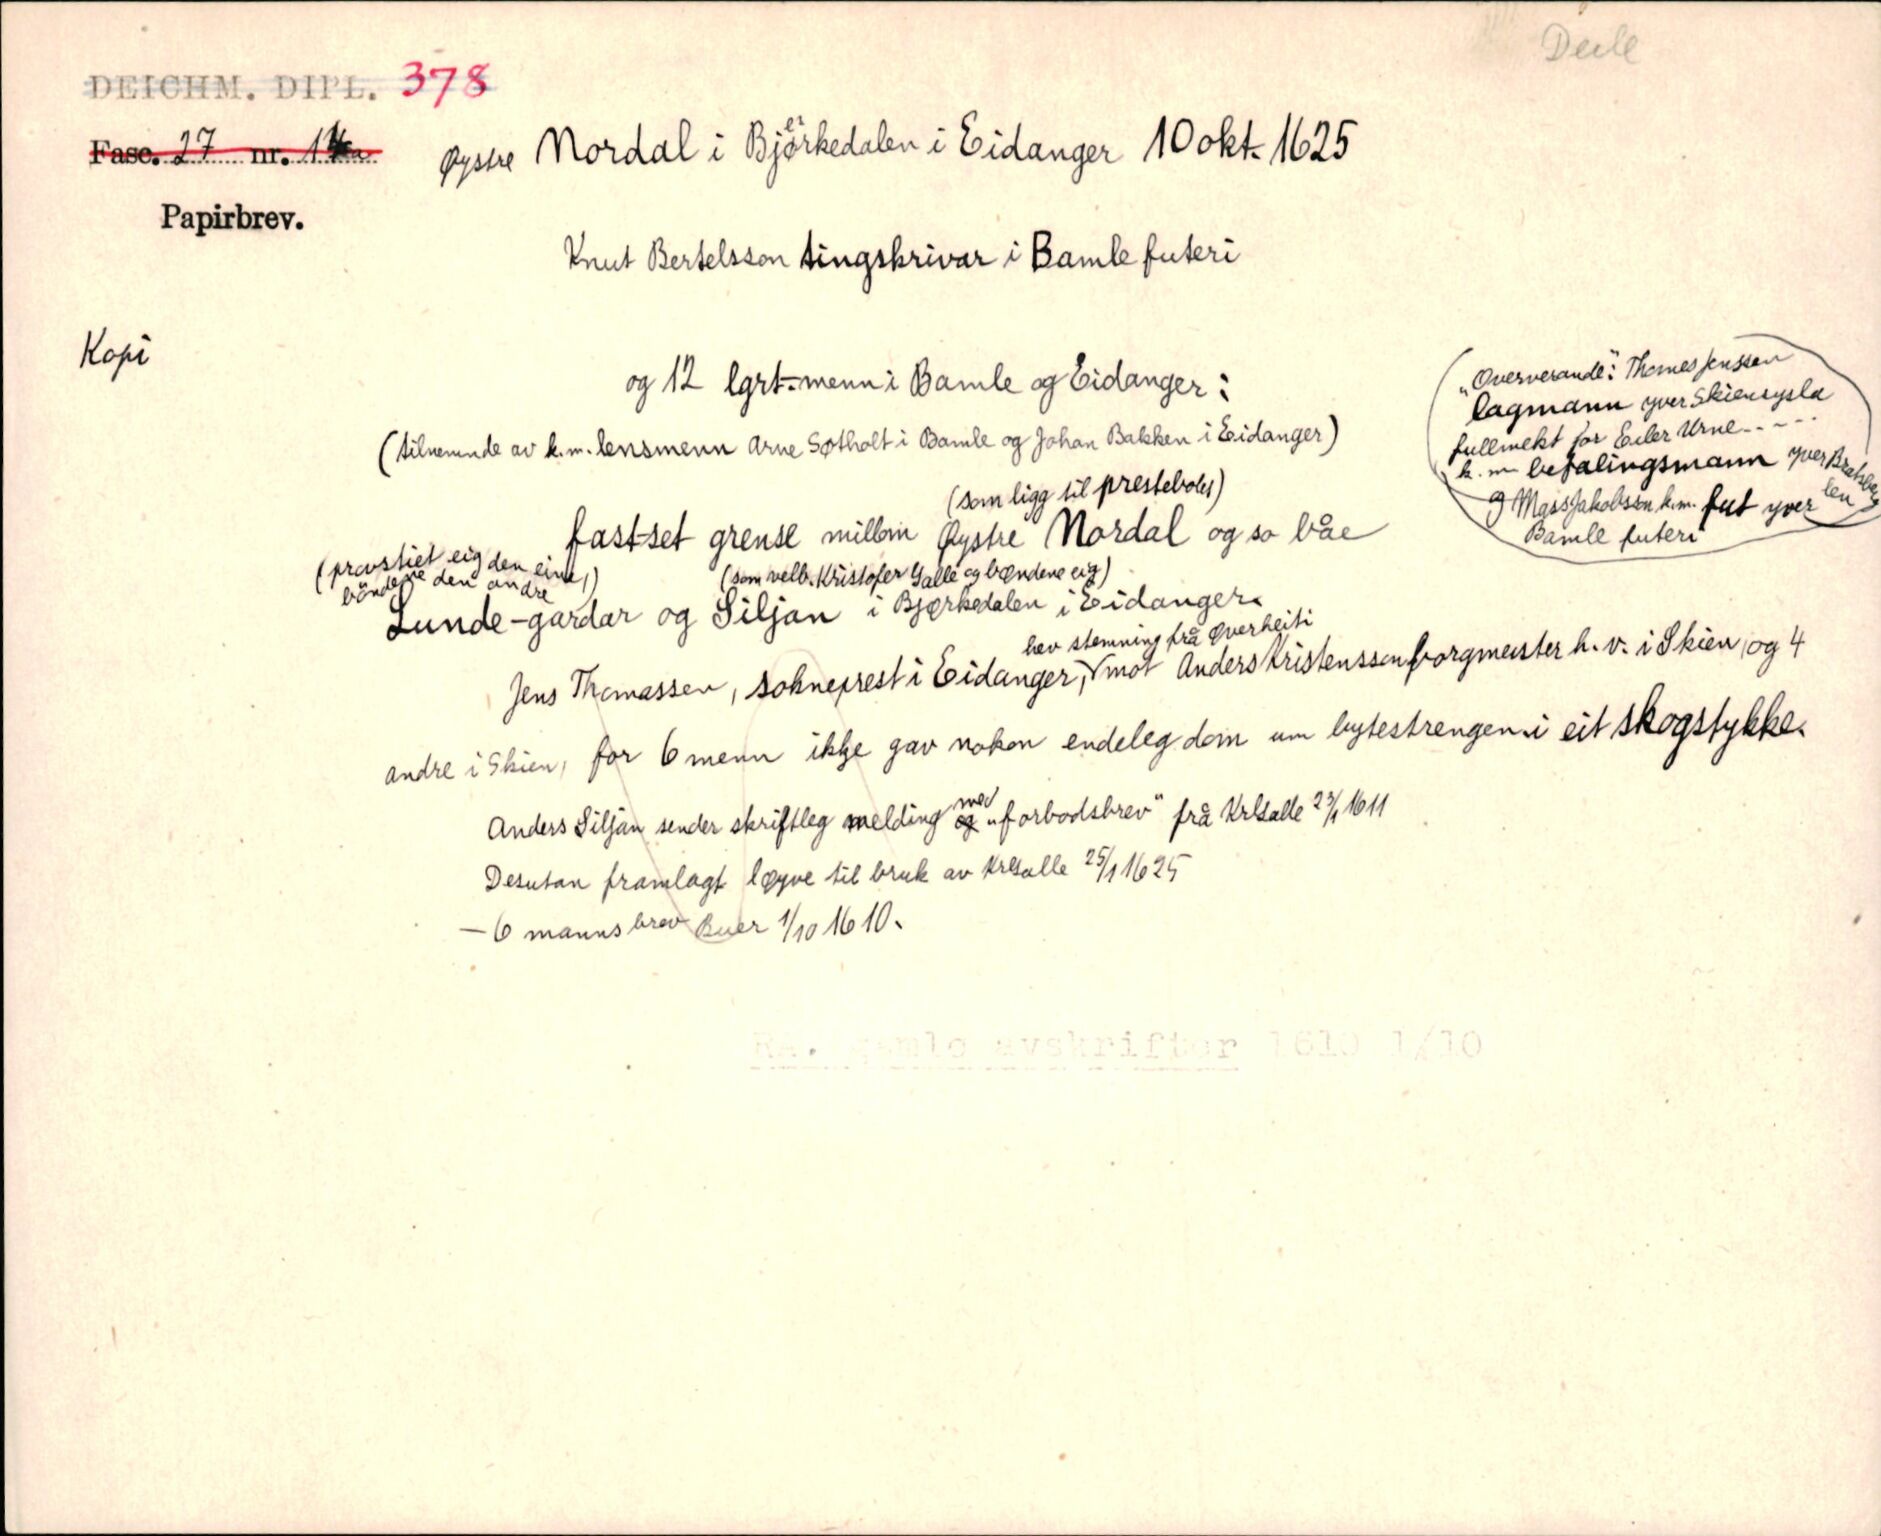 Deile
DEICHM. DIPL. 378
Fasc. 27 nr. 14a
Papirbrev.
Øystre Nordal i Bjørkedalen i Eidanger 10 okt. 1625
Knut Bertelsson tingskrivar i Bamle futeri
Kopi
og 12 lgrt.menn i Bamle og Eidanger:
(tilnemnde av k.m. lensmenn Arne Søtholt i Bamle og Johan Bakken i Eidanger)
("Oververande": Thomes Jenssen
lagmann yver Skiensysla
fullmekt for Eiler Urne - - - -
k.m. befalingsmann yver Bratsberg
len
og Mass Jakobsson k.m. fut yver
Bamle futeri
(som ligg til prestebolet)
fastset grense millom Øystre Nordal og so båe
(provstiet eig den eine,
bøndene den andre)
(som velb. Kristofer Galle og bøndene eig)
Lunde-gardar og Siljan i Bjørkedalen i Eidanger.
hev stemning frå Øverheiti
Jens Thomassen, sokneprest i Eidanger, mot Anders Kristensson borgmeister h. v. i Skien, og 4
andre i Skien, for 6 menn ikkje gav nokon endeleg dom um bytestrengen i eit skogstykke.
Anders Siljan sender skriftleg melding og med "forbodsbrev" frå Kr Galle 23/1 1611
Desutan framlagt løyve til bruk av Kr Galle 25/1 1625
— 6 manns brev Buer 1/10 1610.
RA. gamle avskrifter 1610 1/10